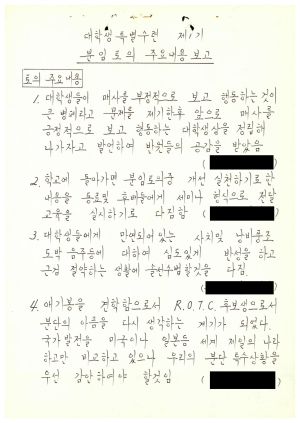 대학생 특별수련 제1기
분임토의 주요내용 보고
토의 주요내용
1. 대학생들이 매사를 부정적으로 보고 행동하는것이
큰 병폐라고 문제를 제기한후 앞으로 매사를
긍정적으로 보고 행동하는 대학생상을 정립해
나가자고 발언하여 반원들의 공감을 받았음
(
2. 학교에 돌아가면 분임토의중 개선 실천하기로한
내용을 동료및 후배들에게 세미나 형식으로 전달
교육을 실시하기로 다짐함 (
3. 대학생들에게 만연되어있는 사치및 낭비풍조
도박 음주등에 대하여 심도있게 반성을 하고
근검 절약하는 생활에 솔선수범할것을 다짐
(
4. 애기봉을 견학함으로서 R.O.T.C 후보생으로서
분단의 아픔을 다시 생각하는 계기가 되었다.
국가발전을 미국이나 일본등 세계 제일의 나라
하고만 비교하고 있으나 우리의 분단 특수상황을
우선 감안하여야 할것임 (